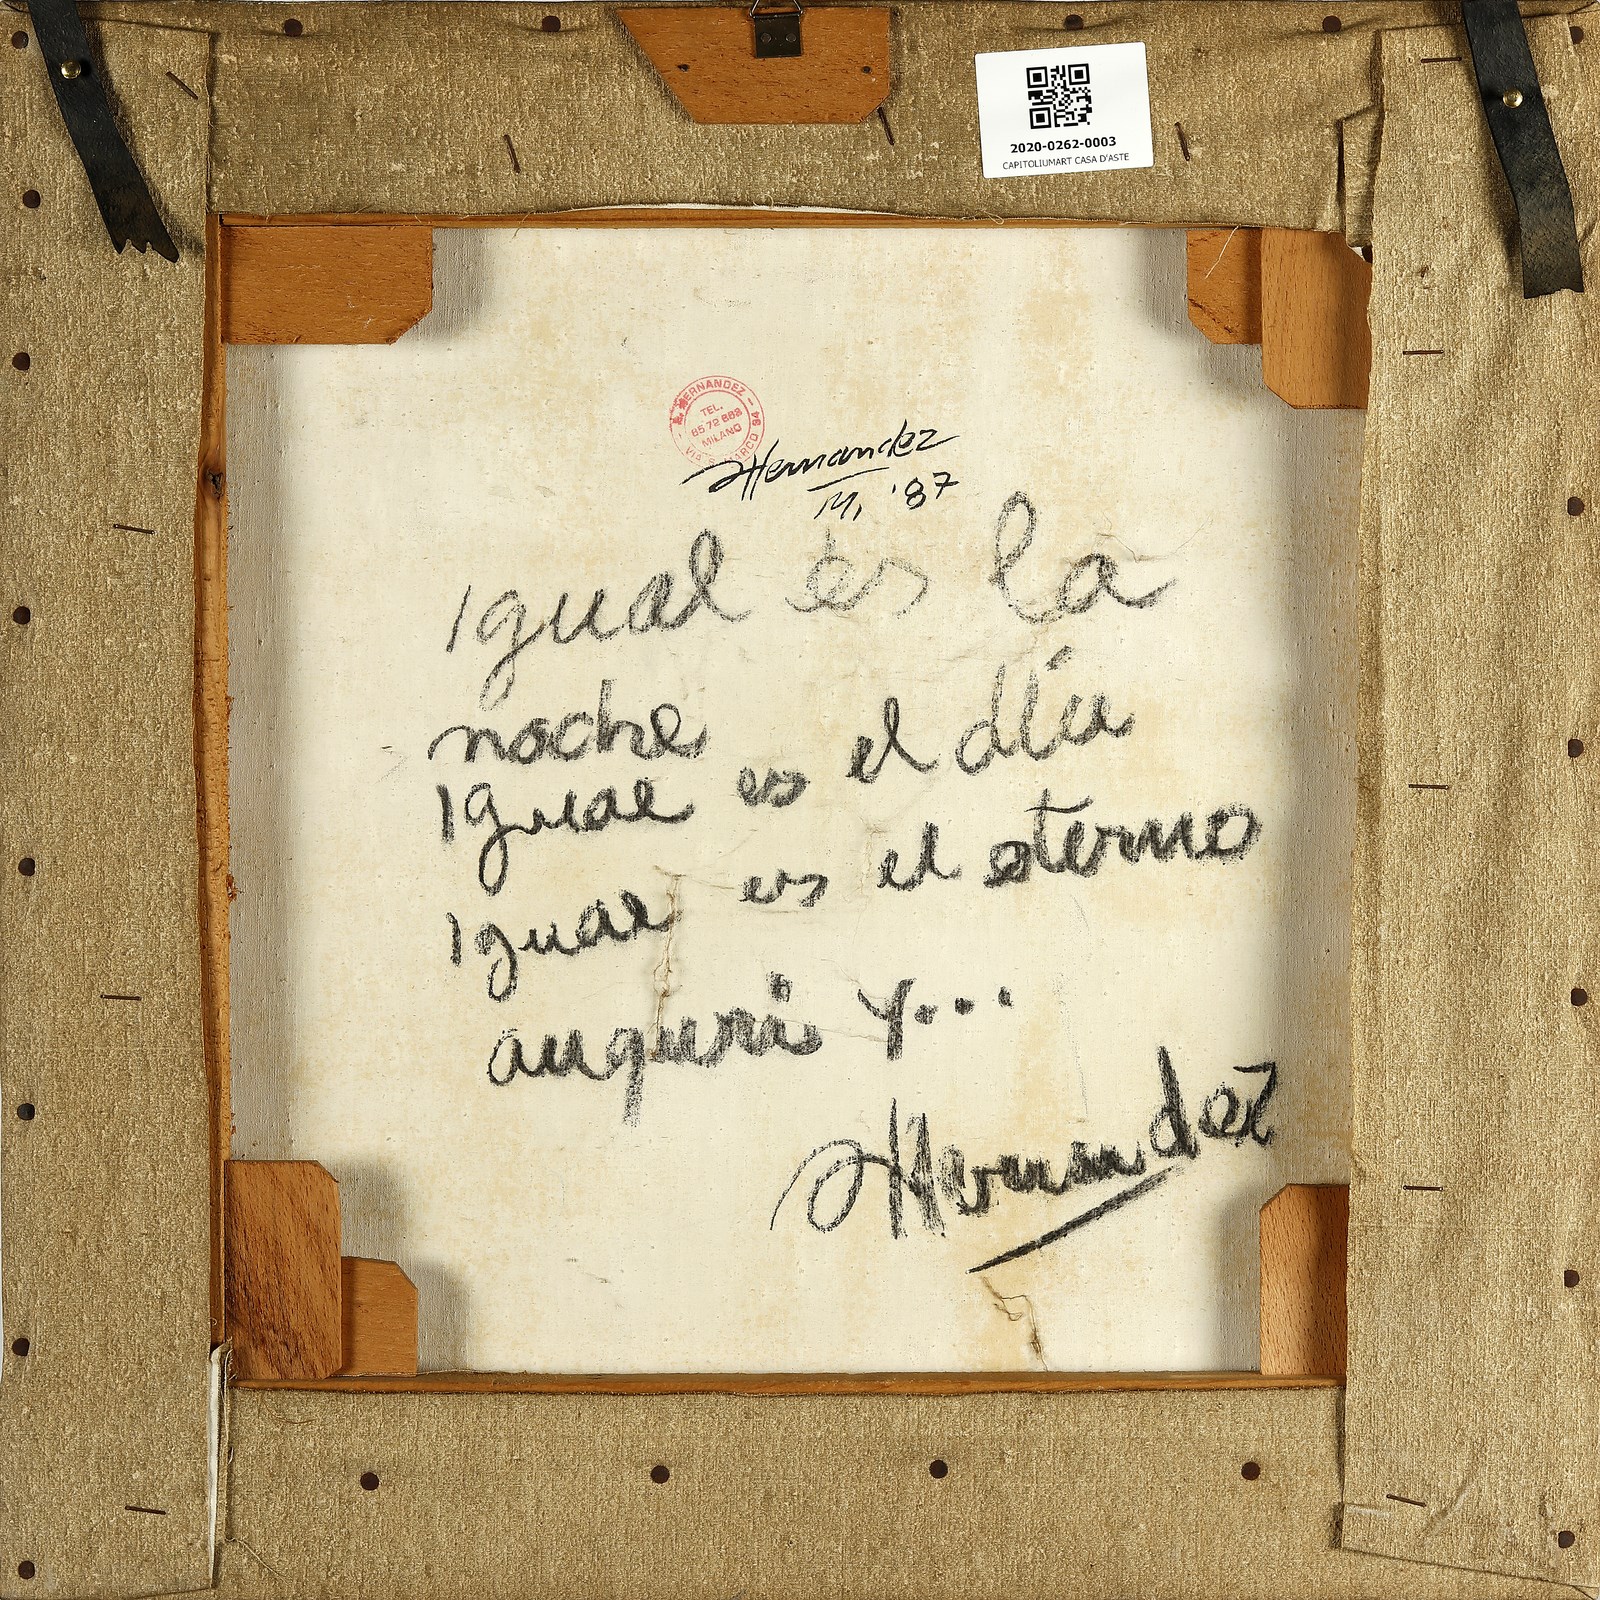 2020-0262-0003
CAPITOLIUMART CASA D'ASTE
A. HERNANDEZ - VIA S. MARCO 34 -
TEL.
65 72 888
MILANO
Hernandez
M, '87
igual es la
noche
igual es el día
igual es el eterno
auguri y...
Hernandez